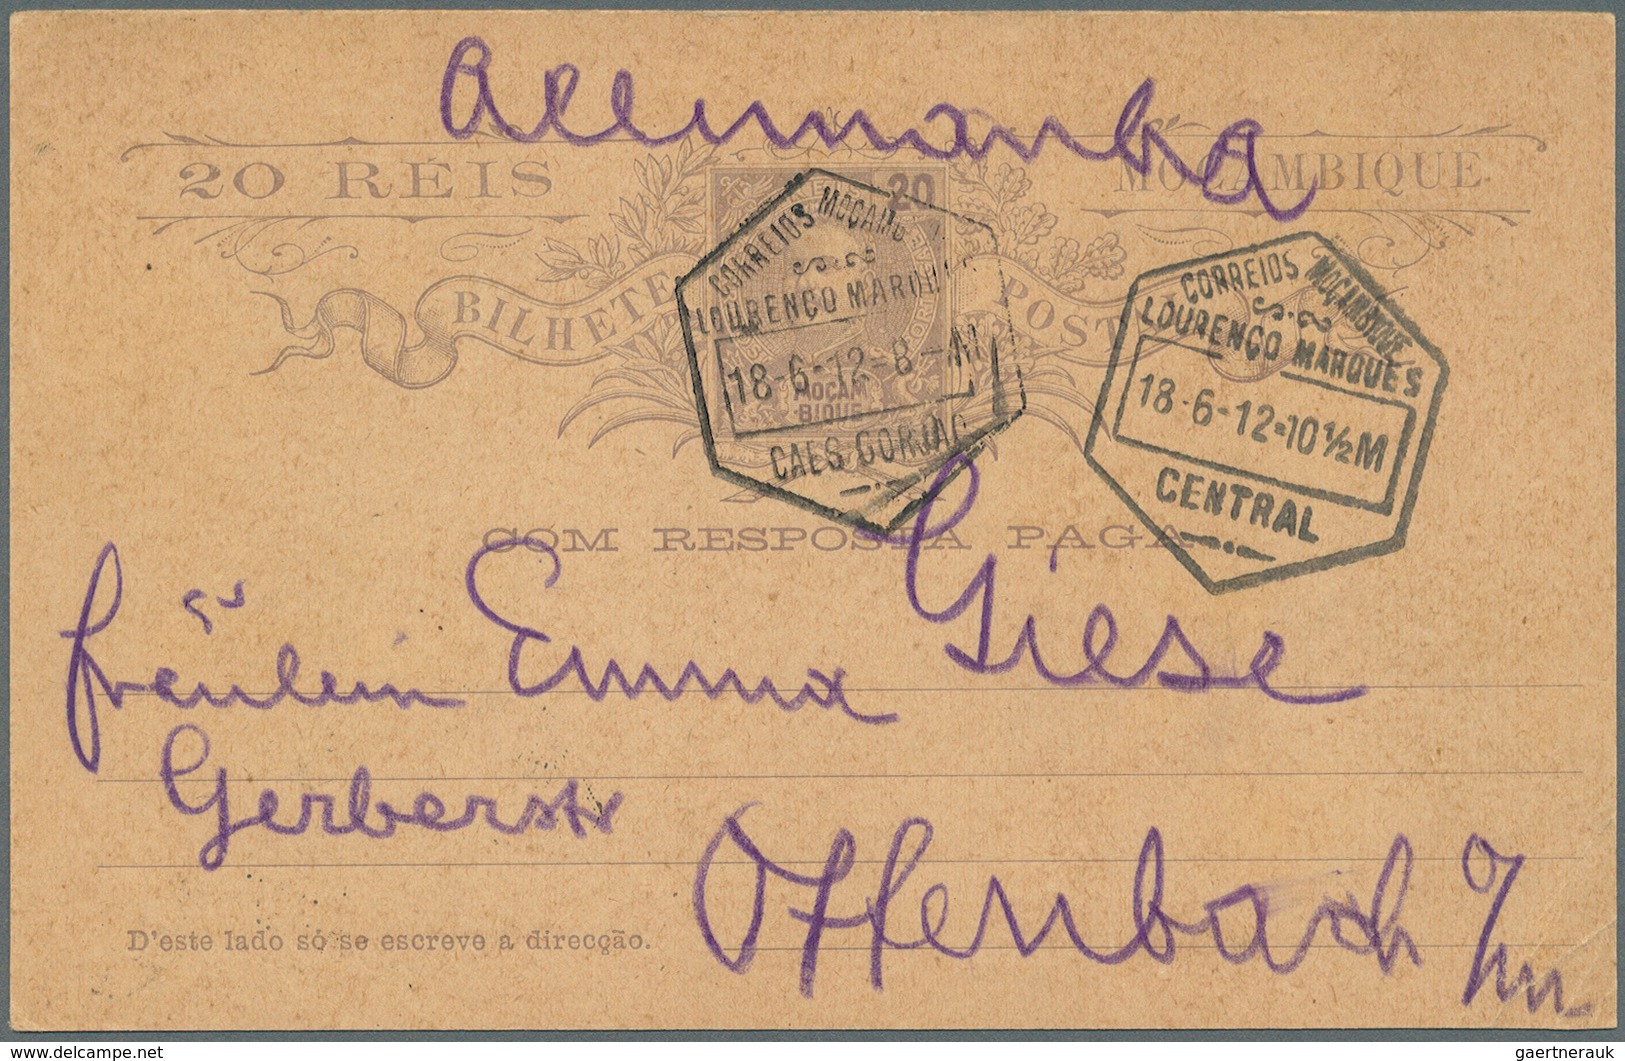 Allemanha
20 RÉIS
MOÇAMBIQUE
20
BILHETE POSTAL
MOÇAM
BIQUE
CORREIOS MOÇAMB
LOURENÇO MARQUES
18-6-12=8-M
CAES GORJAO
CORREIOS MOÇAMBIQUE
LOURENÇO MARQUES
18-6-12=10 ½M
CENTRAL
COM RESPOSTA PAGA
Fräulein Emma Giese
Gerberstr
Offenbach a/m
D'este lado só se escreve a direcção.
delcampe.net
gaertnerauk